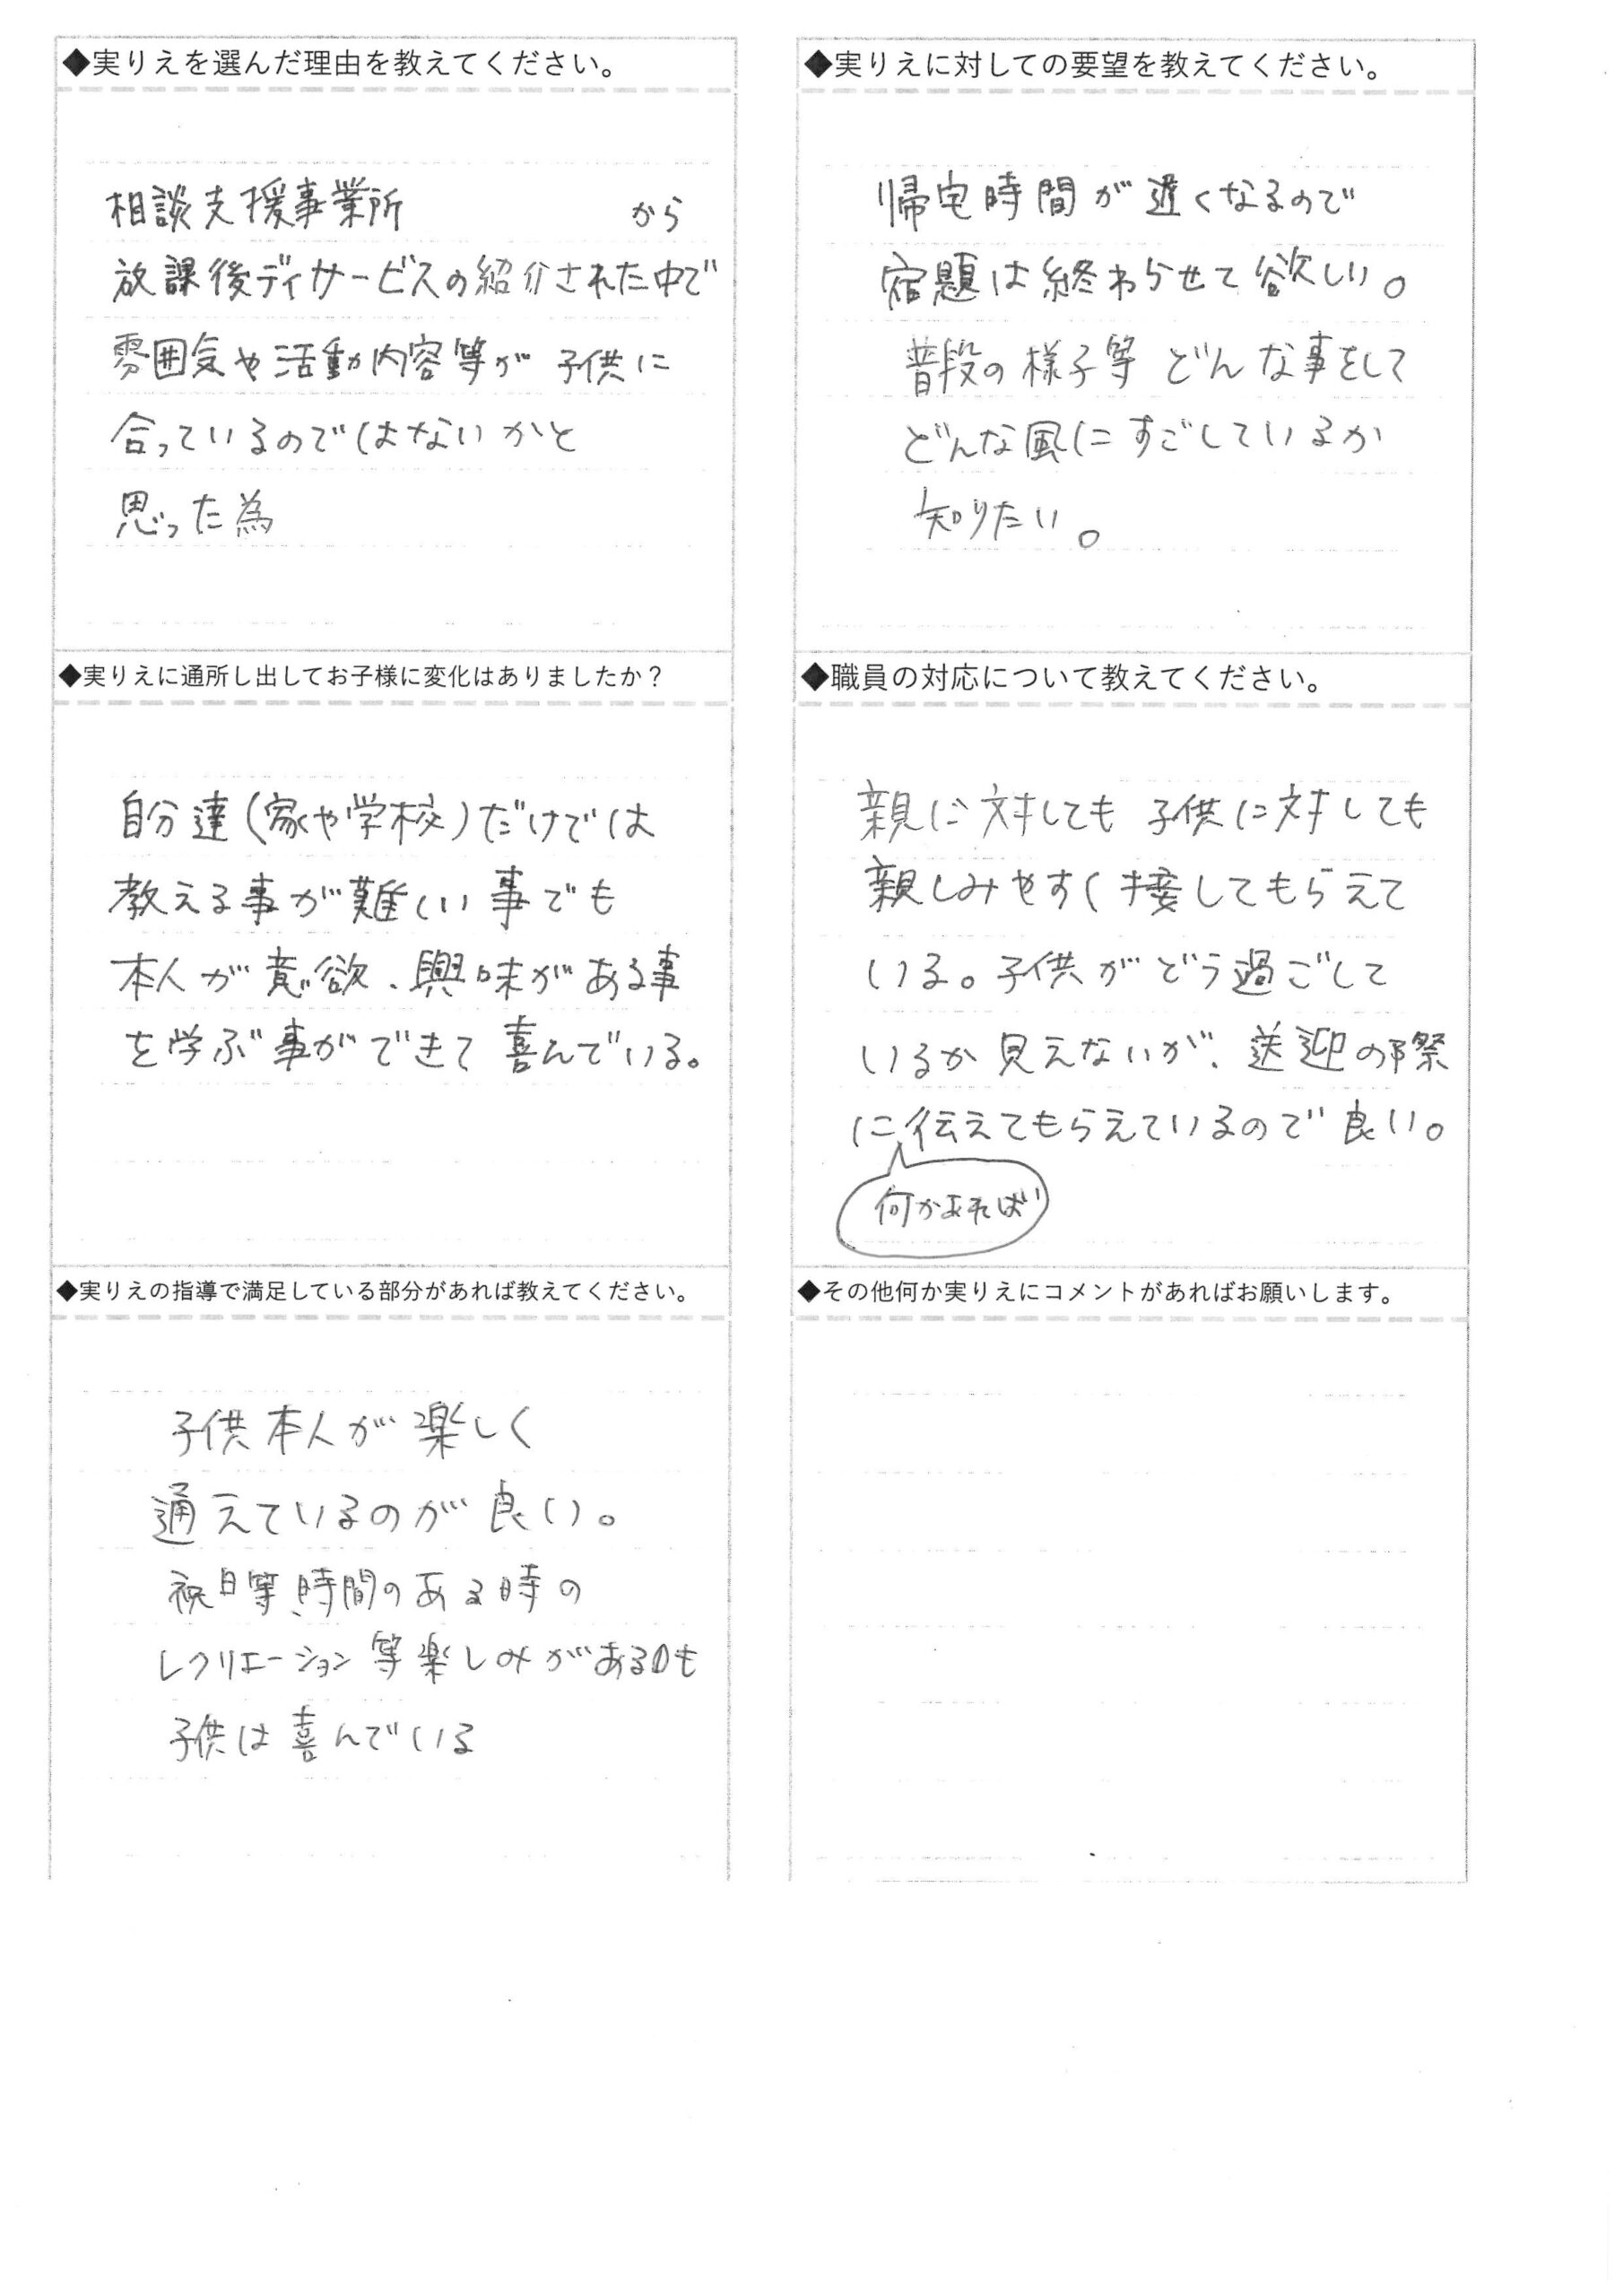 ◆実りえを選んだ理由を教えてください。
相談支援事業所 から
放課後デイサービスの紹介された中で
雰囲気や活動内容等が 子供に
合っているのではないかと
思った為
◆実りえに通所し出してお子様に変化はありましたか？
自分達(家や学校)だけでは
教える事が難しい事でも
本人が意欲、興味がある事
を学ぶ事ができて喜んでいる。
◆実りえの指導で満足している部分があれば教えてください。
子供本人が楽しく
通えているのが良い。
祝日等、時間のある時の
レクリエーション等楽しみがあるのも
子供は喜んでいる
◆実りえに対しての要望を教えてください。
帰宅時間が遅くなるので
宿題は終わらせて欲しい。
普段の様子等 どんな事をして
どんな風にすごしているか
知りたい。
◆職員の対応について教えてください。
親に対しても 子供に対しても
親しみやすく接してもらえて
いる。子供がどう過ごして
いるか見えないが、送迎の際
に伝えてもらえているので良い。
何かあれば
◆その他何か実りえにコメントがあればお願いします。